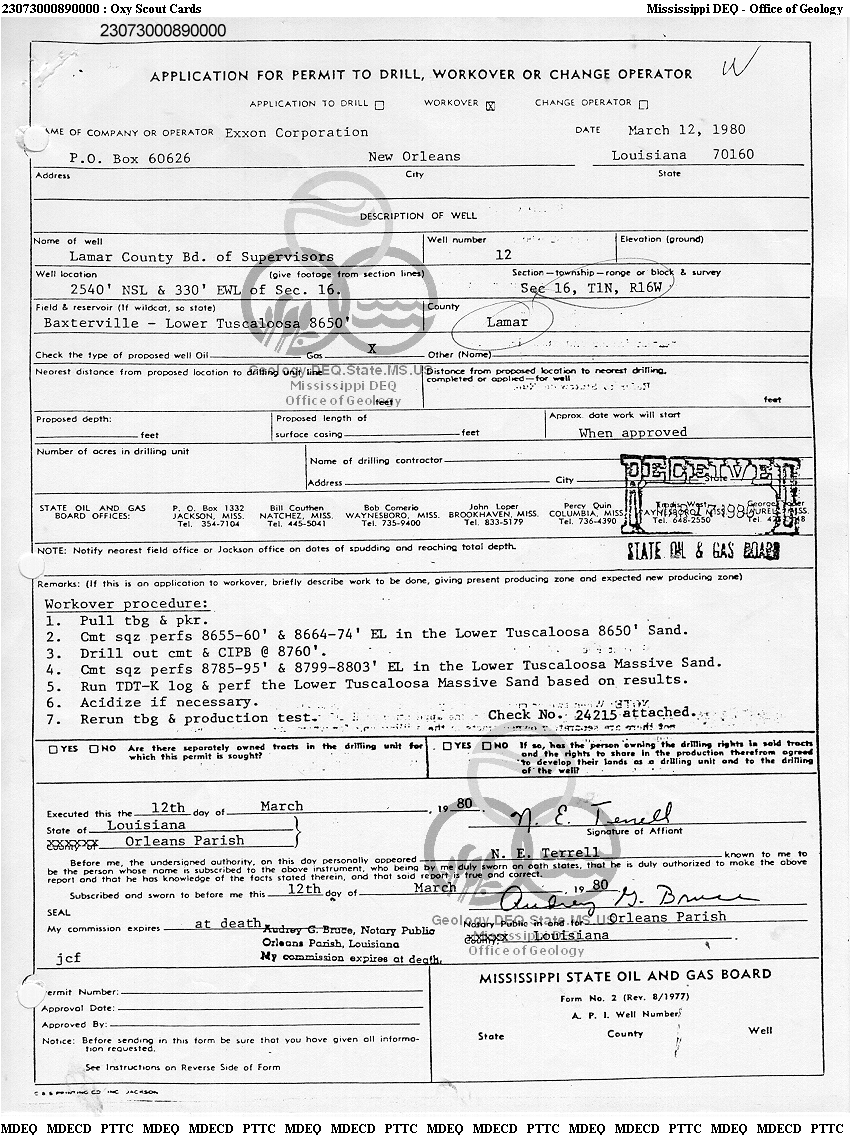 23073000890000 : Oxy Scout Cards Mississippi DEQ - Office of Geology
23073000890000
APPLICATION FOR PERMIT TO DRILL, WORKOVER OR CHANGE OPERATOR W
APPLICATION TO DRILL ☐ WORKOVER ☒ CHANGE OPERATOR ☐
AME OF COMPANY OR OPERATOR Exxon Corporation DATE March 12, 1980
P.O. Box 60626 New Orleans Louisiana 70160
Address City State
DESCRIPTION OF WELL
Name of well Well number Elevation (ground)
Lamar County Bd. of Supervisors 12
Well location (give footage from section lines) Section-township-range or block & survey
2540' NSL & 330' EWL of Sec. 16. Sec 16, T1N, R16W
Field & reservoir (If wildcat, so state) County
Baxterville - Lower Tuscaloosa 8650' Lamar
Check the type of proposed well Oil Gas X Other (Name)
Geology.DEQ.State.MS.US
Mississippi DEQ
Office of Geology
Nearest distance from proposed location to drilling unit line Distance from proposed location to nearest drilling,
completed or applied-for well
feet feet
Proposed depth: Proposed length of Approx. date work will start
feet surface casing feet When approved
Number of acres in drilling unit
Name of drilling contractor
Address City State
RECEIVED
STATE OIL AND GAS P. O. Box 1332 Bill Couthen Bob Comerio John Loper Percy Quin
BOARD OFFICES: JACKSON, MISS. NATCHEZ, MISS. WAYNESBORO, MISS. BROOKHAVEN, MISS. COLUMBIA, MISS.
Tel. 354-7104 Tel. 445-5041 Tel. 735-9400 Tel. 833-5179 Tel. 736-4390 Tel. 648-2550
STATE OIL & GAS BOARD
NOTE: Notify nearest field office or Jackson office on dates of spudding and reaching total depth.
Remarks: (If this is an application to workover, briefly describe work to be done, giving present producing zone and expected new producing zone)
Workover procedure:
1. Pull tbg & pkr.
2. Cmt sqz perfs 8655-60' & 8664-74' EL in the Lower Tuscaloosa 8650' Sand.
3. Drill out cmt & CIPB @ 8760'.
4. Cmt sqz perfs 8785-95' & 8799-8803' EL in the Lower Tuscaloosa Massive Sand.
5. Run TDT-K log & perf the Lower Tuscaloosa Massive Sand based on results.
6. Acidize if necessary.
7. Rerun tbg & production test. Check No. 24215 attached.
☐ YES ☐ NO Are there separately owned tracts in the drilling unit for which this permit is sought?
☐ YES ☐ NO If so, has the person owning the drilling rights in said tracts
and the rights to share in the production therefrom agreed
to develop their lands as a drilling unit and to the drilling
of the well?
Executed this the 12th day of March, 19 80.
N. E. Terrell
State of Louisiana Signature of Affiant
County of Orleans Parish
Before me, the undersigned authority, on this day personally appeared N. E. Terrell known to me to
be the person whose name is subscribed to the above instrument, who being by me duly sworn on oath states, that he is duly authorized to make the above
report and that he has knowledge of the facts stated therein, and that said report is true and correct.
Subscribed and sworn to before me this 12th day of March, 19 80
Audrey G. Bruce
SEAL
Geology.DEQ.State.MS.US
Mississippi DEQ
Office of Geology
My commission expires at death Notary Public in and for Orleans Parish
Audrey G. Bruce, Notary Public County: Louisiana
Orleans Parish, Louisiana
My commission expires at death.
jcf
MISSISSIPPI STATE OIL AND GAS BOARD
ermit Number:
Form No. 2 (Rev. 8/1977)
Approval Date:
A. P. I. Well Number
Approved By:
State County Well
Notice: Before sending in this form be sure that you have given all informa-
tion requested.
See Instructions on Reverse Side of Form
PRINTING CO INC JACKSON
MDEQ MDECD PTTC MDEQ MDECD PTTC MDEQ MDECD PTTC MDEQ MDECD PTTC MDEQ MDECD PTTC MDEQ MDECD PTTC